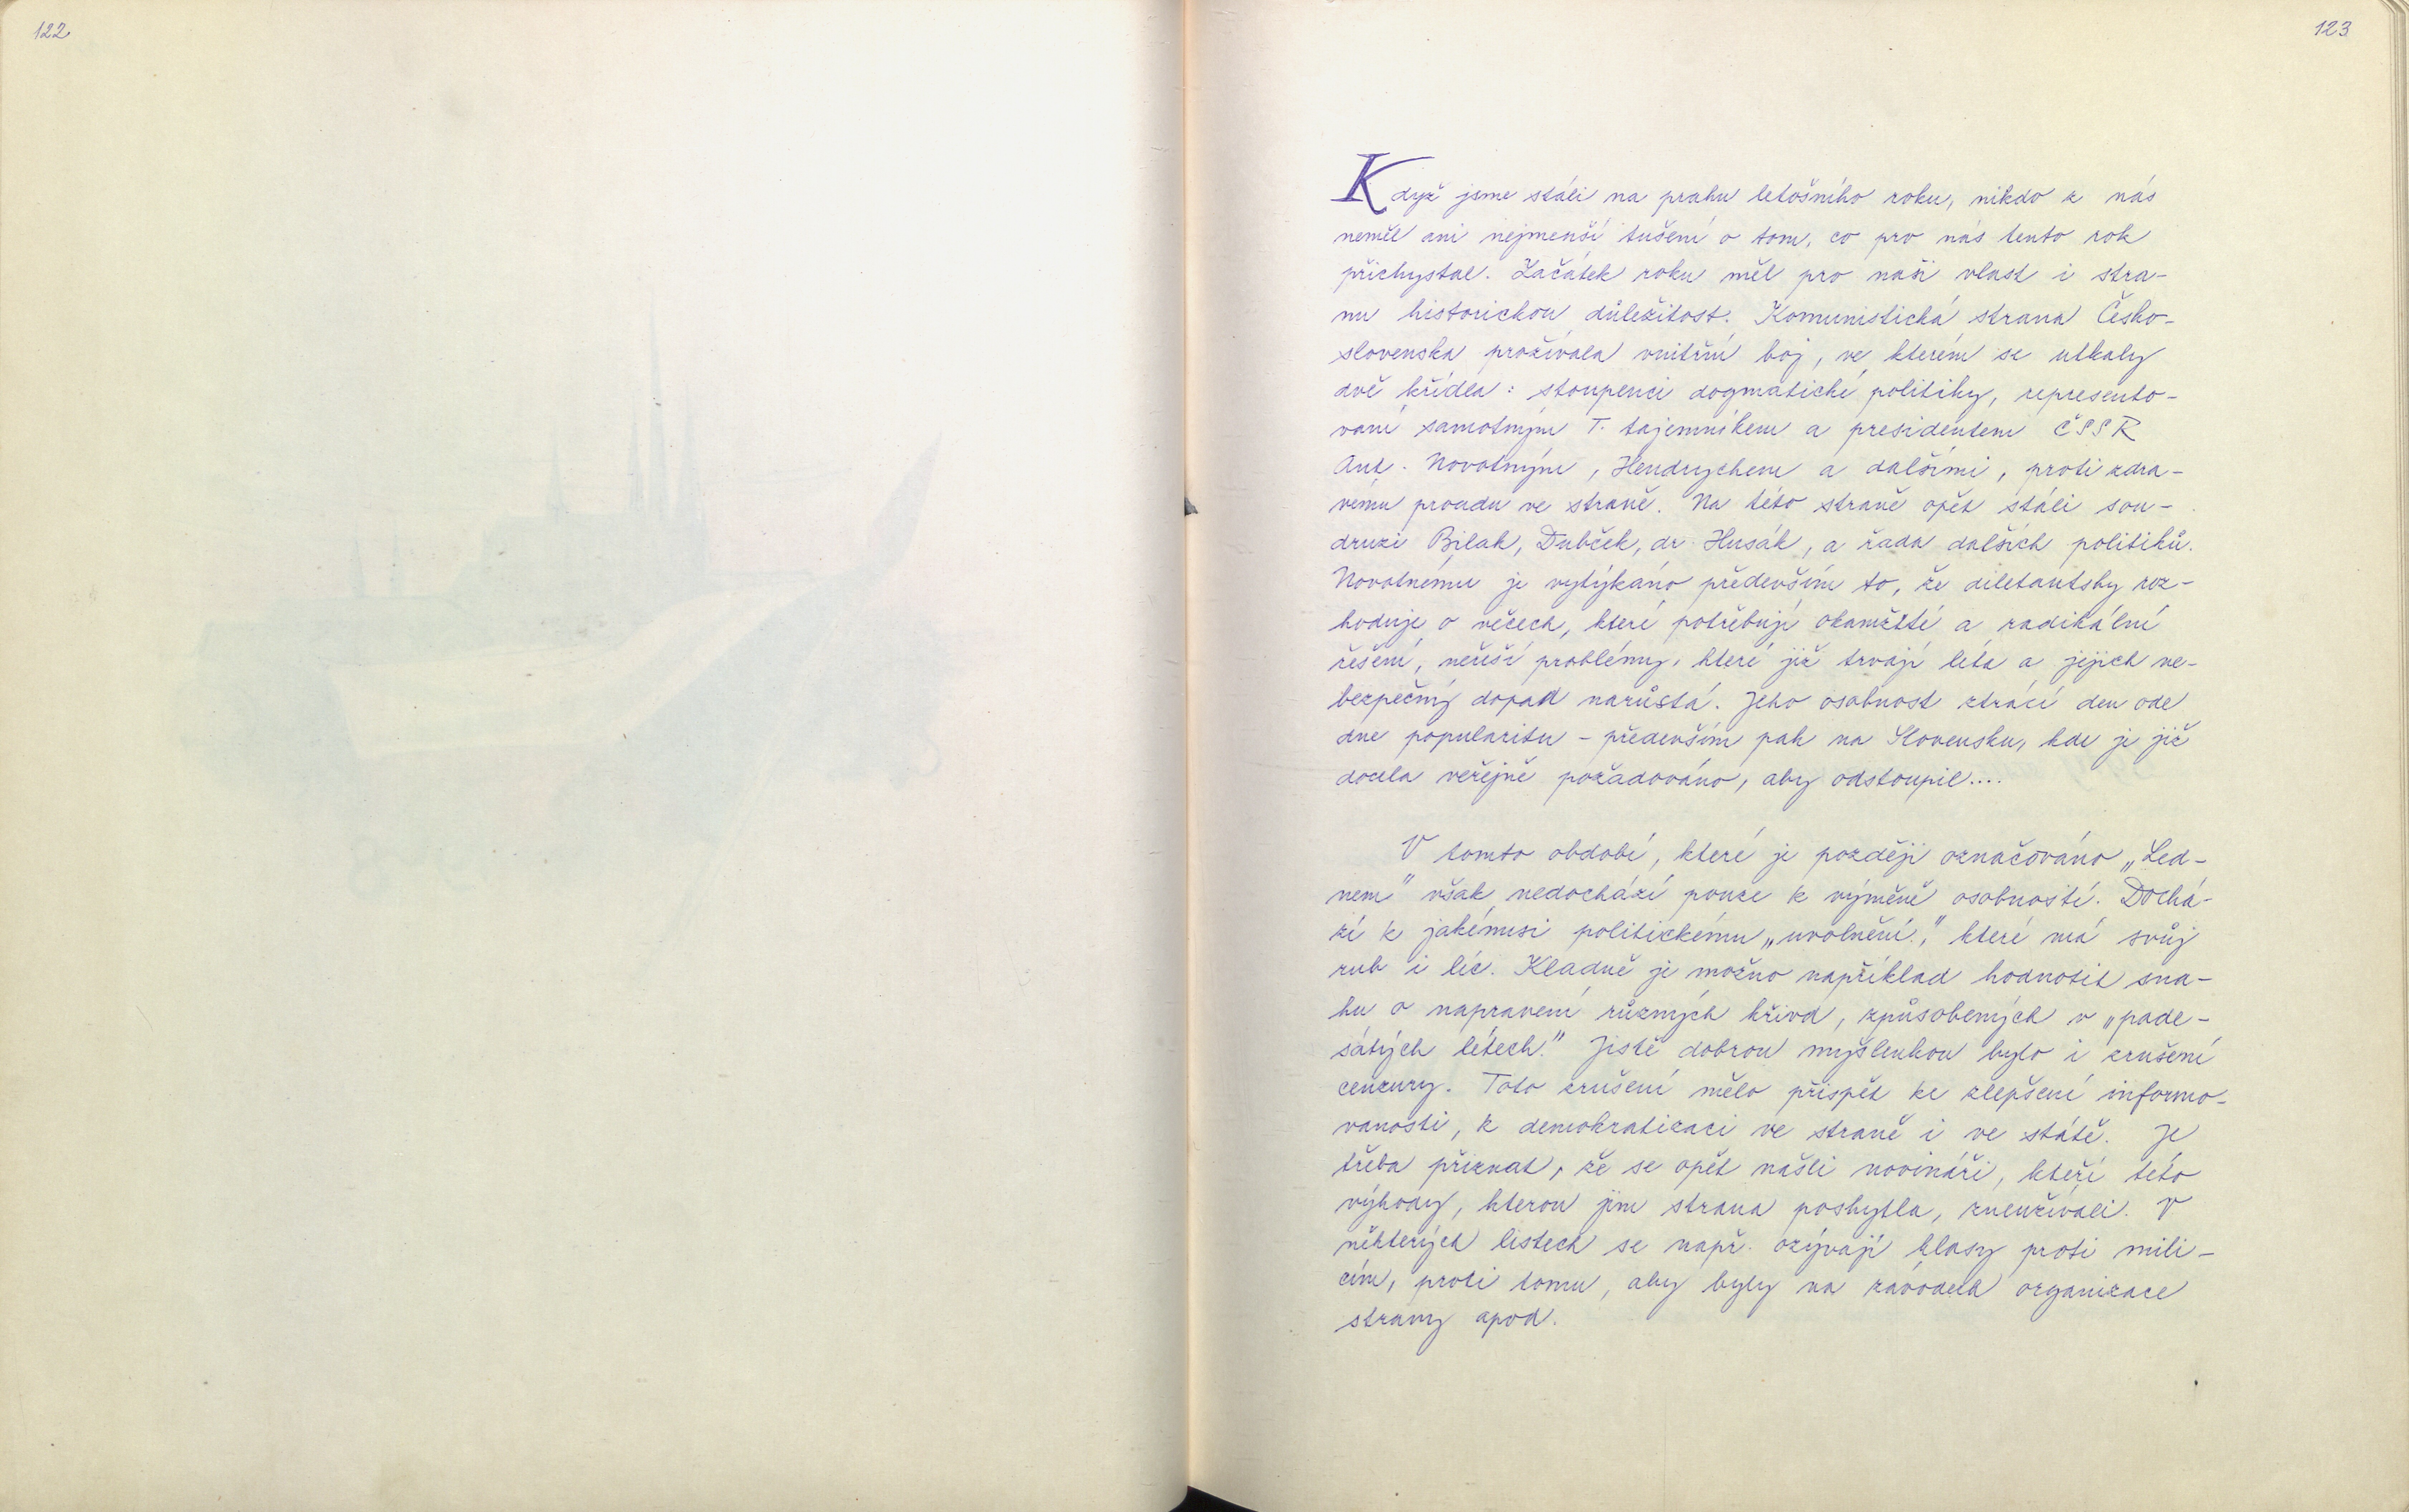 122
123
Když jsme stáli na prahu letošního roku, nikdo z nás
neměl ani nejmenší tušení o tom, co pro nás tento rok
přichystal. Začátek roku měl pro naši vlast i stra-
nu historickou důležitost. Komunistická strana Česko-
slovenska prožívala vnitřní boj, ve kterém se utkaly
dvě křídla: stoupenci dogmatické politiky, represento-
vaní samotným T. tajemníkem a presidentem ČSSR
Ant. Novotným, Hendrychem a dalšími, proti zdra-
vému proudu ve straně. Na této straně opět stáli sou-
druzi Bilak, Dubček, dr Husák, a řada dalších politiků.
Novotnému je vytýkáno především to, že diletantsky roz-
hoduje o věcech, které potřebují okamžité a radikální
řešení, neřeší problémy, které již trvají léta a jejich ne-
bezpečný dopad narůstá. Jeho osobnost ztrácí den ode
dne popularitu - především pak na Slovensku, kde je již
docela veřejně požadováno, aby odstoupil....
V tomto období, které je později označováno „Led-
nem" však nedochází pouze k výměně osobností. Dochá-
zí k jakémusi politickému „uvolnění", které má svůj
rub i líc. Kladně je možno například hodnotit sna-
hu o napravení různých křivd, způsobených v „pade-
sátých létech." Jistě dobrou myšlenkou bylo i zrušení
cenzury. Toto zrušení mělo přispět ke zlepšení informo-
vanosti, k demokratizaci ve straně i ve státě. Je
třeba přiznat, že se opět našli novináři, kteří této
výhody, kterou jim strana poskytla, zneužívali. V
některých listech se např. ozývají hlasy proti mili-
cím, proti tomu, aby byly na závodech organizace
strany apod.